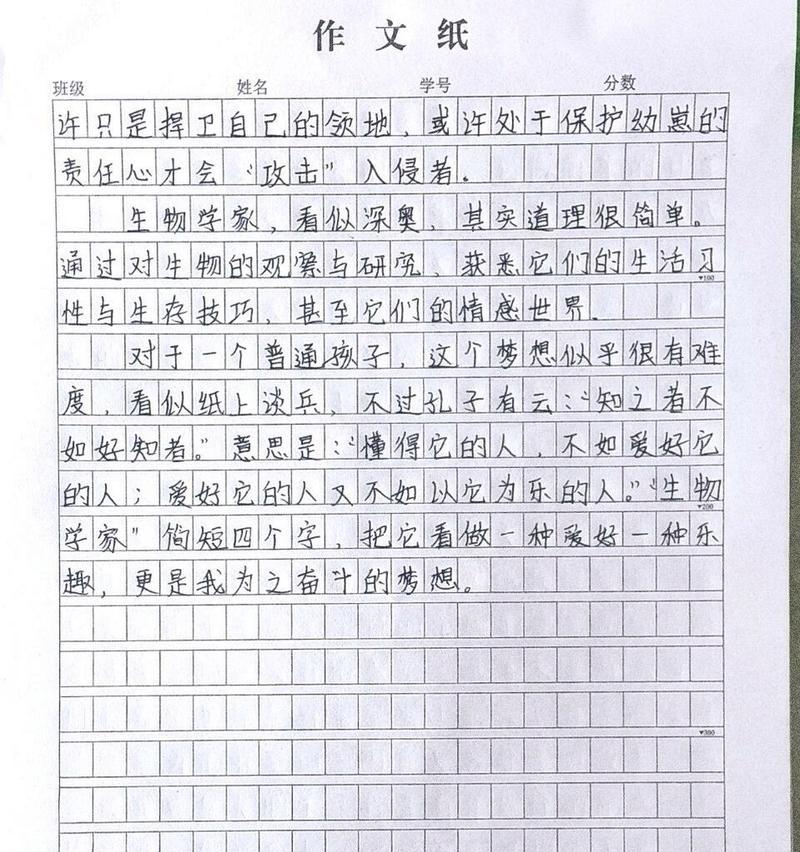 作文纸
班级 姓名 学号 分数
许只是捍卫自己的领地，或许处于保护幼崽的
责任心才会“攻击”入侵者。
生物学家，看似深奥，其实道理很简单。
通过对生物的观察与研究，获悉它们的生活习
▼100
性与生存技巧，甚至它们的情感世界．
对于一个普通孩子，这个梦想似乎很有难
度，看似纸上谈兵，不过孔子有云：“知之者不
如好知者。”意思是：“懂得它的人，不如爱好它
的人；爱好它的人又不如以它为乐的人。”“生物
▼200
学家”简短四个字，把它看做一种爱好一种乐
趣，更是我为之奋斗的梦想。
▼300